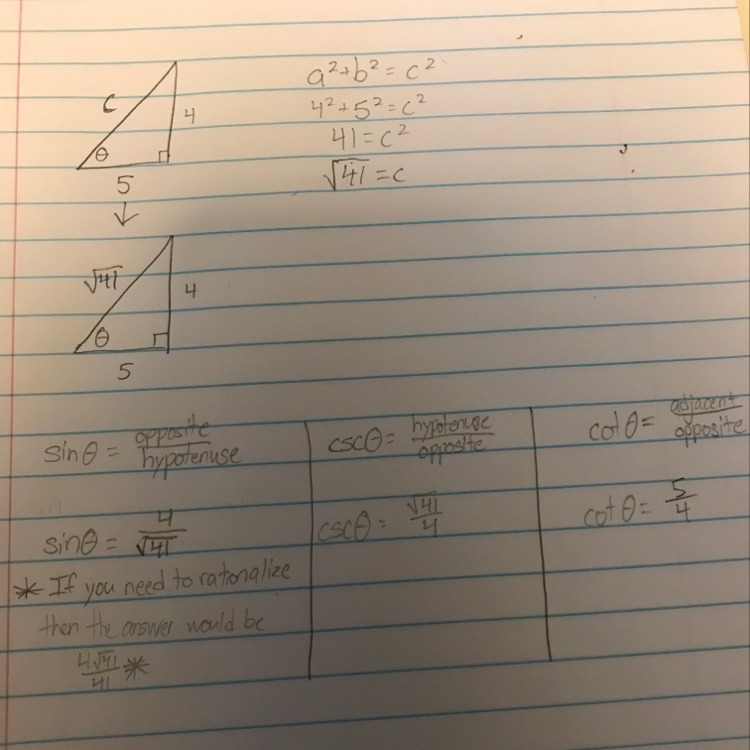 c
4
θ
5
a²+b²=c²
4²+5²=c²
41=c²
√41=c
↓
√41
4
θ
5
sinθ = opposite/hypotenuse
sinθ = 4/√41
* If you need to rationalize
then the answer would be
4√41/41 *
cscθ = hypotenuse/opposite
cscθ = √41/4
cotθ = adjacent/opposite
cotθ = 5/4